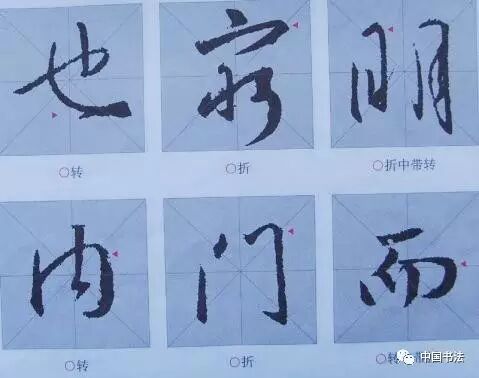 也 明
○转 ○折 ○折中带转
内 门 而
○转 ○折 ○转
中国书法